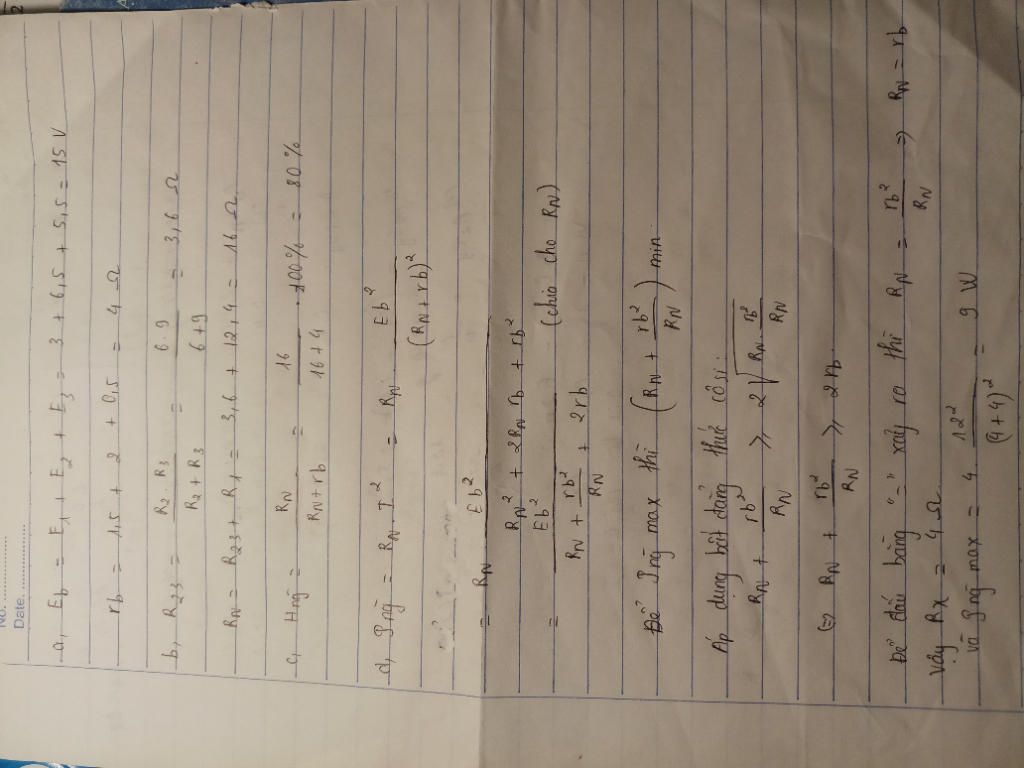 No. ..................
Date. ..................
a, Eb = E1 + E2 + E3 = 3 + 6,5 + 5,5 = 15 V
rb = 1,5 + 2 + 0,5 = 4 Ω
b, R23 = R2 R3 / R2 + R3 = 6 . 9 / 6 + 9 = 3,6 Ω
RN = R23 + R1 = 3,6 + 12,4 = 16 Ω
c, Hng̃ = RN / RN + rb = 16 / 16 + 4 . 100 % = 80 %
d, Png̃ = RN I² = RN . Eb² / (RN + rb)²
= RN Eb² / RN² + 2RN rb + rb²
= Eb² / RN + rb²/RN + 2rb (chia cho RN)
Để Png̃ max thì (RN + rb²/RN) min
Áp dụng bất đẳng thức cô si
RN + rb²/RN ≥ 2√RN . rb²/RN
⇔ RN + rb²/RN ≥ 2rb
Để dấu bằng "=" xảy ra thì RN = rb²/RN ⇒ RN = rb
Vậy Rx = 4 Ω
và Png max = 4 . 12² / (4+4)² = 9 W